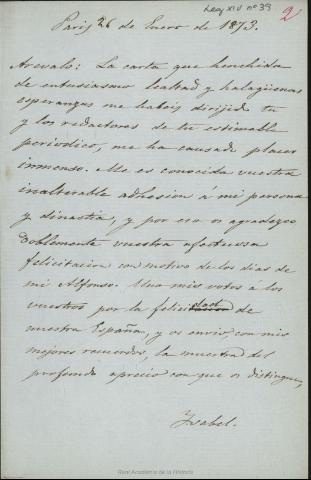 Leg XIV nº 39
2
Paris 26 de Enero de 1873.
Arevalo: La carta que henchida
de entusiasmo lealtad y halagüenas
esperanzas me habeis dirijido tu
y los redactores de tu estimable
periodico, me ha causado placer
inmenso. Me es conocida vuestra
inalterable adhesion á mi persona
y dinastia, y por eso os agradezco
doblemente vuestra afectuosa
felicitacion con motivo de los dias de
mi Alfonso. Uno mis votos á los
vuestros por la felicidad de
nuestra España, y os envio con mis
mejores recuerdos, la muestra del
profundo aprecio con que os distingue,
Ysabel.
Real Academia de la Historia